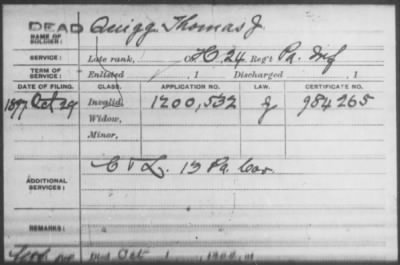 DEAD
NAME OF SOLDIER: Quigg Thomas J.
SERVICE: Late rank, Co. H. 24 Reg't Pa. Inf
TERM OF SERVICE: Enlisted , 1 Discharged , 1
DATE OF FILING. CLASS. APPLICATION NO. LAW. CERTIFICATE NO.
1897 Oct 29 Invalid, 1200,532 984265
Widow,
Minor,
ADDITIONAL SERVICES: 13 Pa. Cav.
REMARKS:
Died Oct